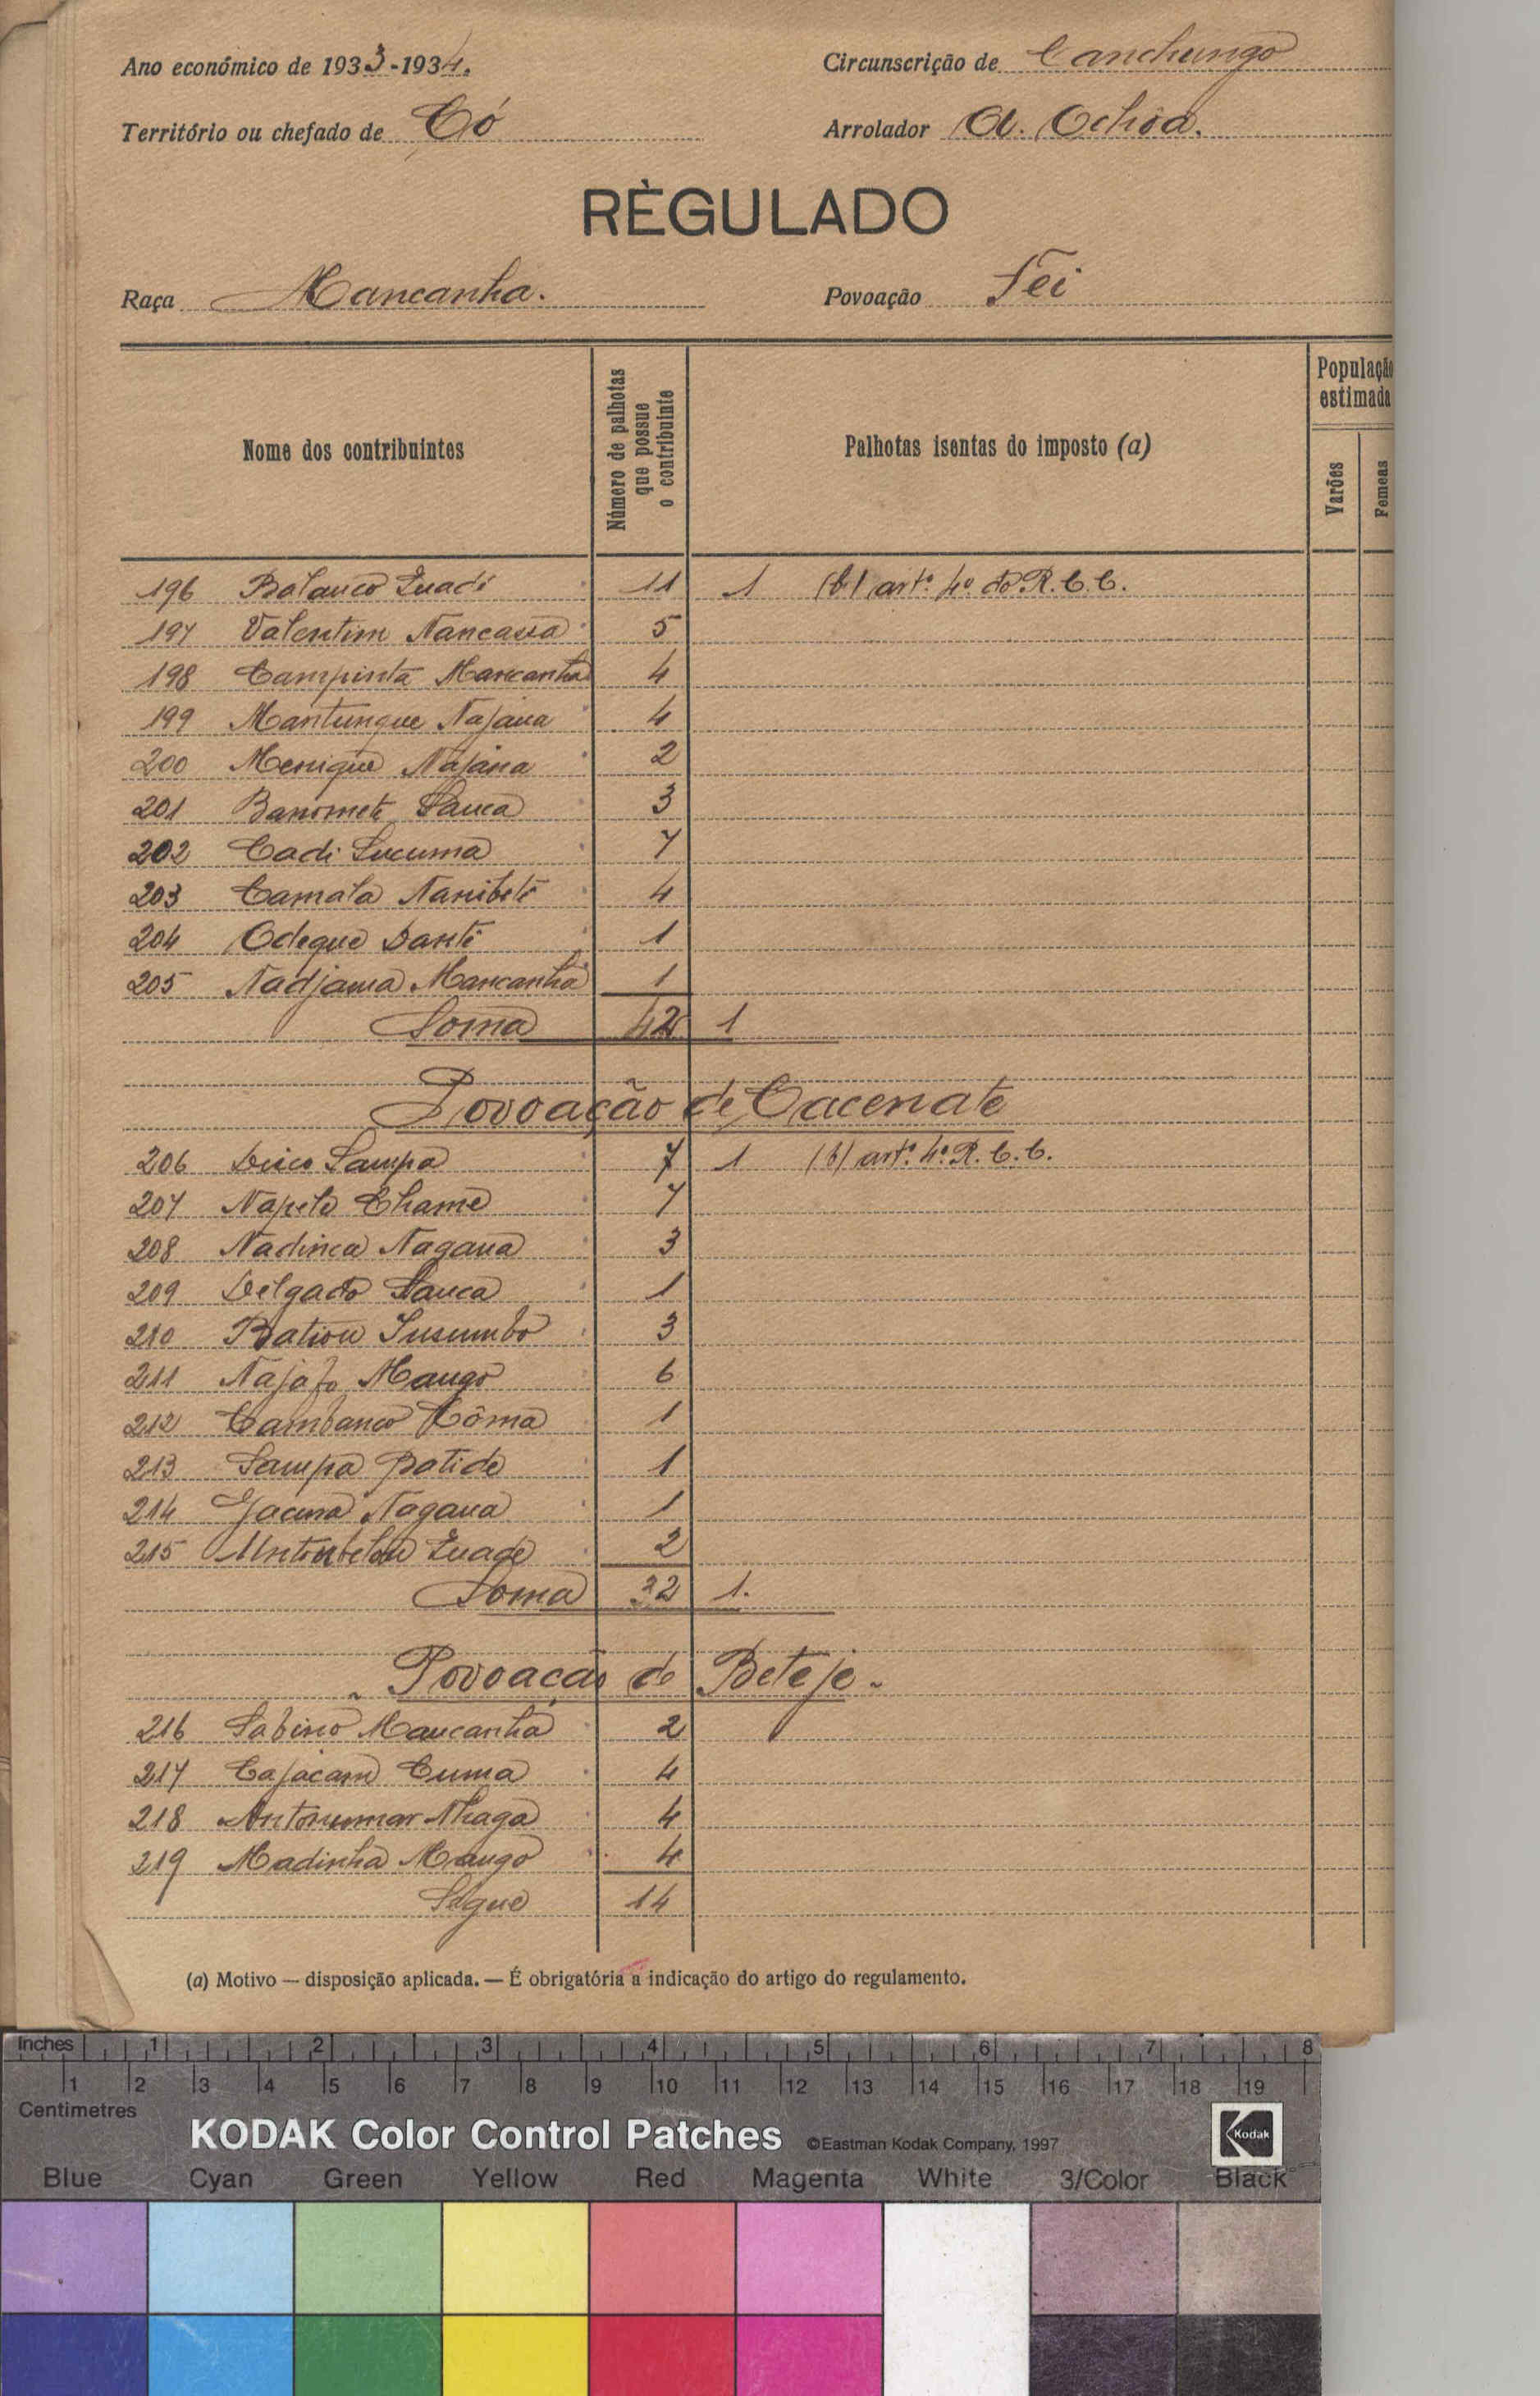 Ano económico de 1933-1934.
Circunscrição de Canchungo
Território ou chefado de Có
Arrolador A. Ochôa.
RÈGULADO
Raça Mancanha.
Povoação Fei
Nome dos contribuintes
Número de palhotas que possue o contribuinte
Palhotas isentas do imposto (a)
População estimada
Varões
Femeas
196 Balanco Zuadi 11 1 (b) art.º 4º do R.C.C.
197 Valentim Nancassa 5
198 Campinta Mancanha 4
199 Mantunque Najaua 4
200 Menique Najana 2
201 Banomete Sanca 3
202 Cadi Sucuma 7
203 Camala Nanibete 4
204 Odeque Dante 1
205 Nadjama Mancanha 1
Soma 42 1
Povoação de Cacenate
206 Sampa 7 1 (b) art.º 4º R.C.C.
207 Napelo Chame 7
208 Nadinca Nagana 3
209 Delgado Sanca 1
210 Batiou Susumbo 3
211 Najafo Mango 6
212 Cambanco Côma 1
213 Sampa Batide 1
214 Jacina Nagana 1
215 Zuade 2
Soma 32 1.
Povoacão de Beteje.
216 Sabino Mancanha 2
217 Cajacam Cuma 4
218 Antonumar Nhaga 4
219 Madinha Mango 4
Segue 14
(a) Motivo — disposição aplicada. — É obrigatória a indicação do artigo do regulamento.
Inches 1 2 3 4 5 6 7 8
1 2 3 4 5 6 7 8 9 10 11 12 13 14 15 16 17 18 19
Centimetres
KODAK Color Control Patches ©Eastman Kodak Company, 1997 Kodak
Blue Cyan Green Yellow Red Magenta White 3/Color Black